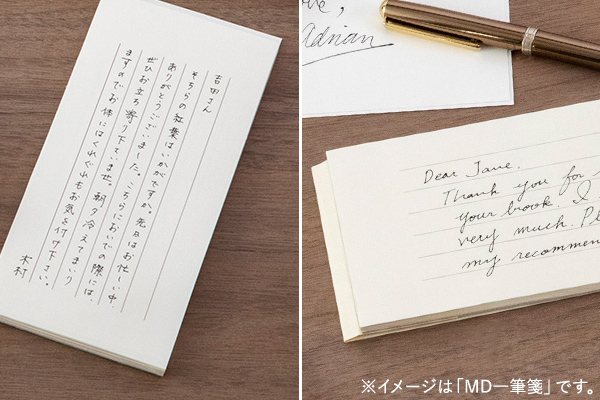 吉田さん
そちらの紅葉はいかがですか。先日はお忙しい中
ありがとうございました。こちらにおいでの際には、
ぜひお立ち寄り下さいませ。朝夕冷えてまいり
ますのでお体にはくれぐれもお気を付け下さい。
木村
Adrian
Dear Jane,
Thank you for
your book. I
very much. Pl
my recommen
※イメージは「MD一筆箋」です。